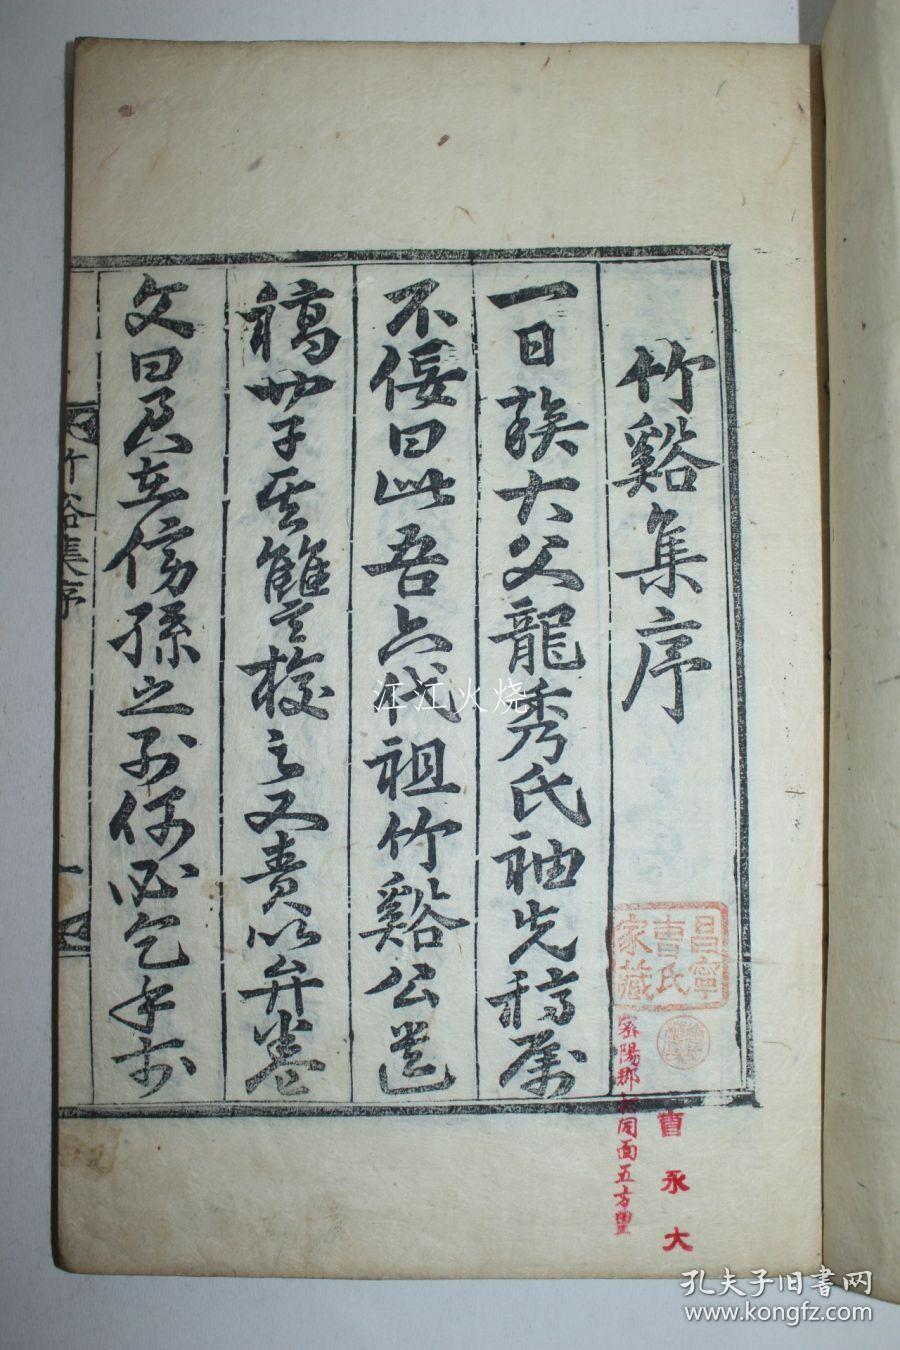 竹谿集序
一日族大父龍秀氏袖先稿属
不佞曰此吾六代祖竹谿公遺
稿也子其讎校之又責以弁卷
文曰在傍孫之列何必乞手
竹谷集序
一
昌寧
曹氏
家藏
曹永大
密陽郡同面五方里
江江火烧
孔夫子旧書网
www.kongfz.com